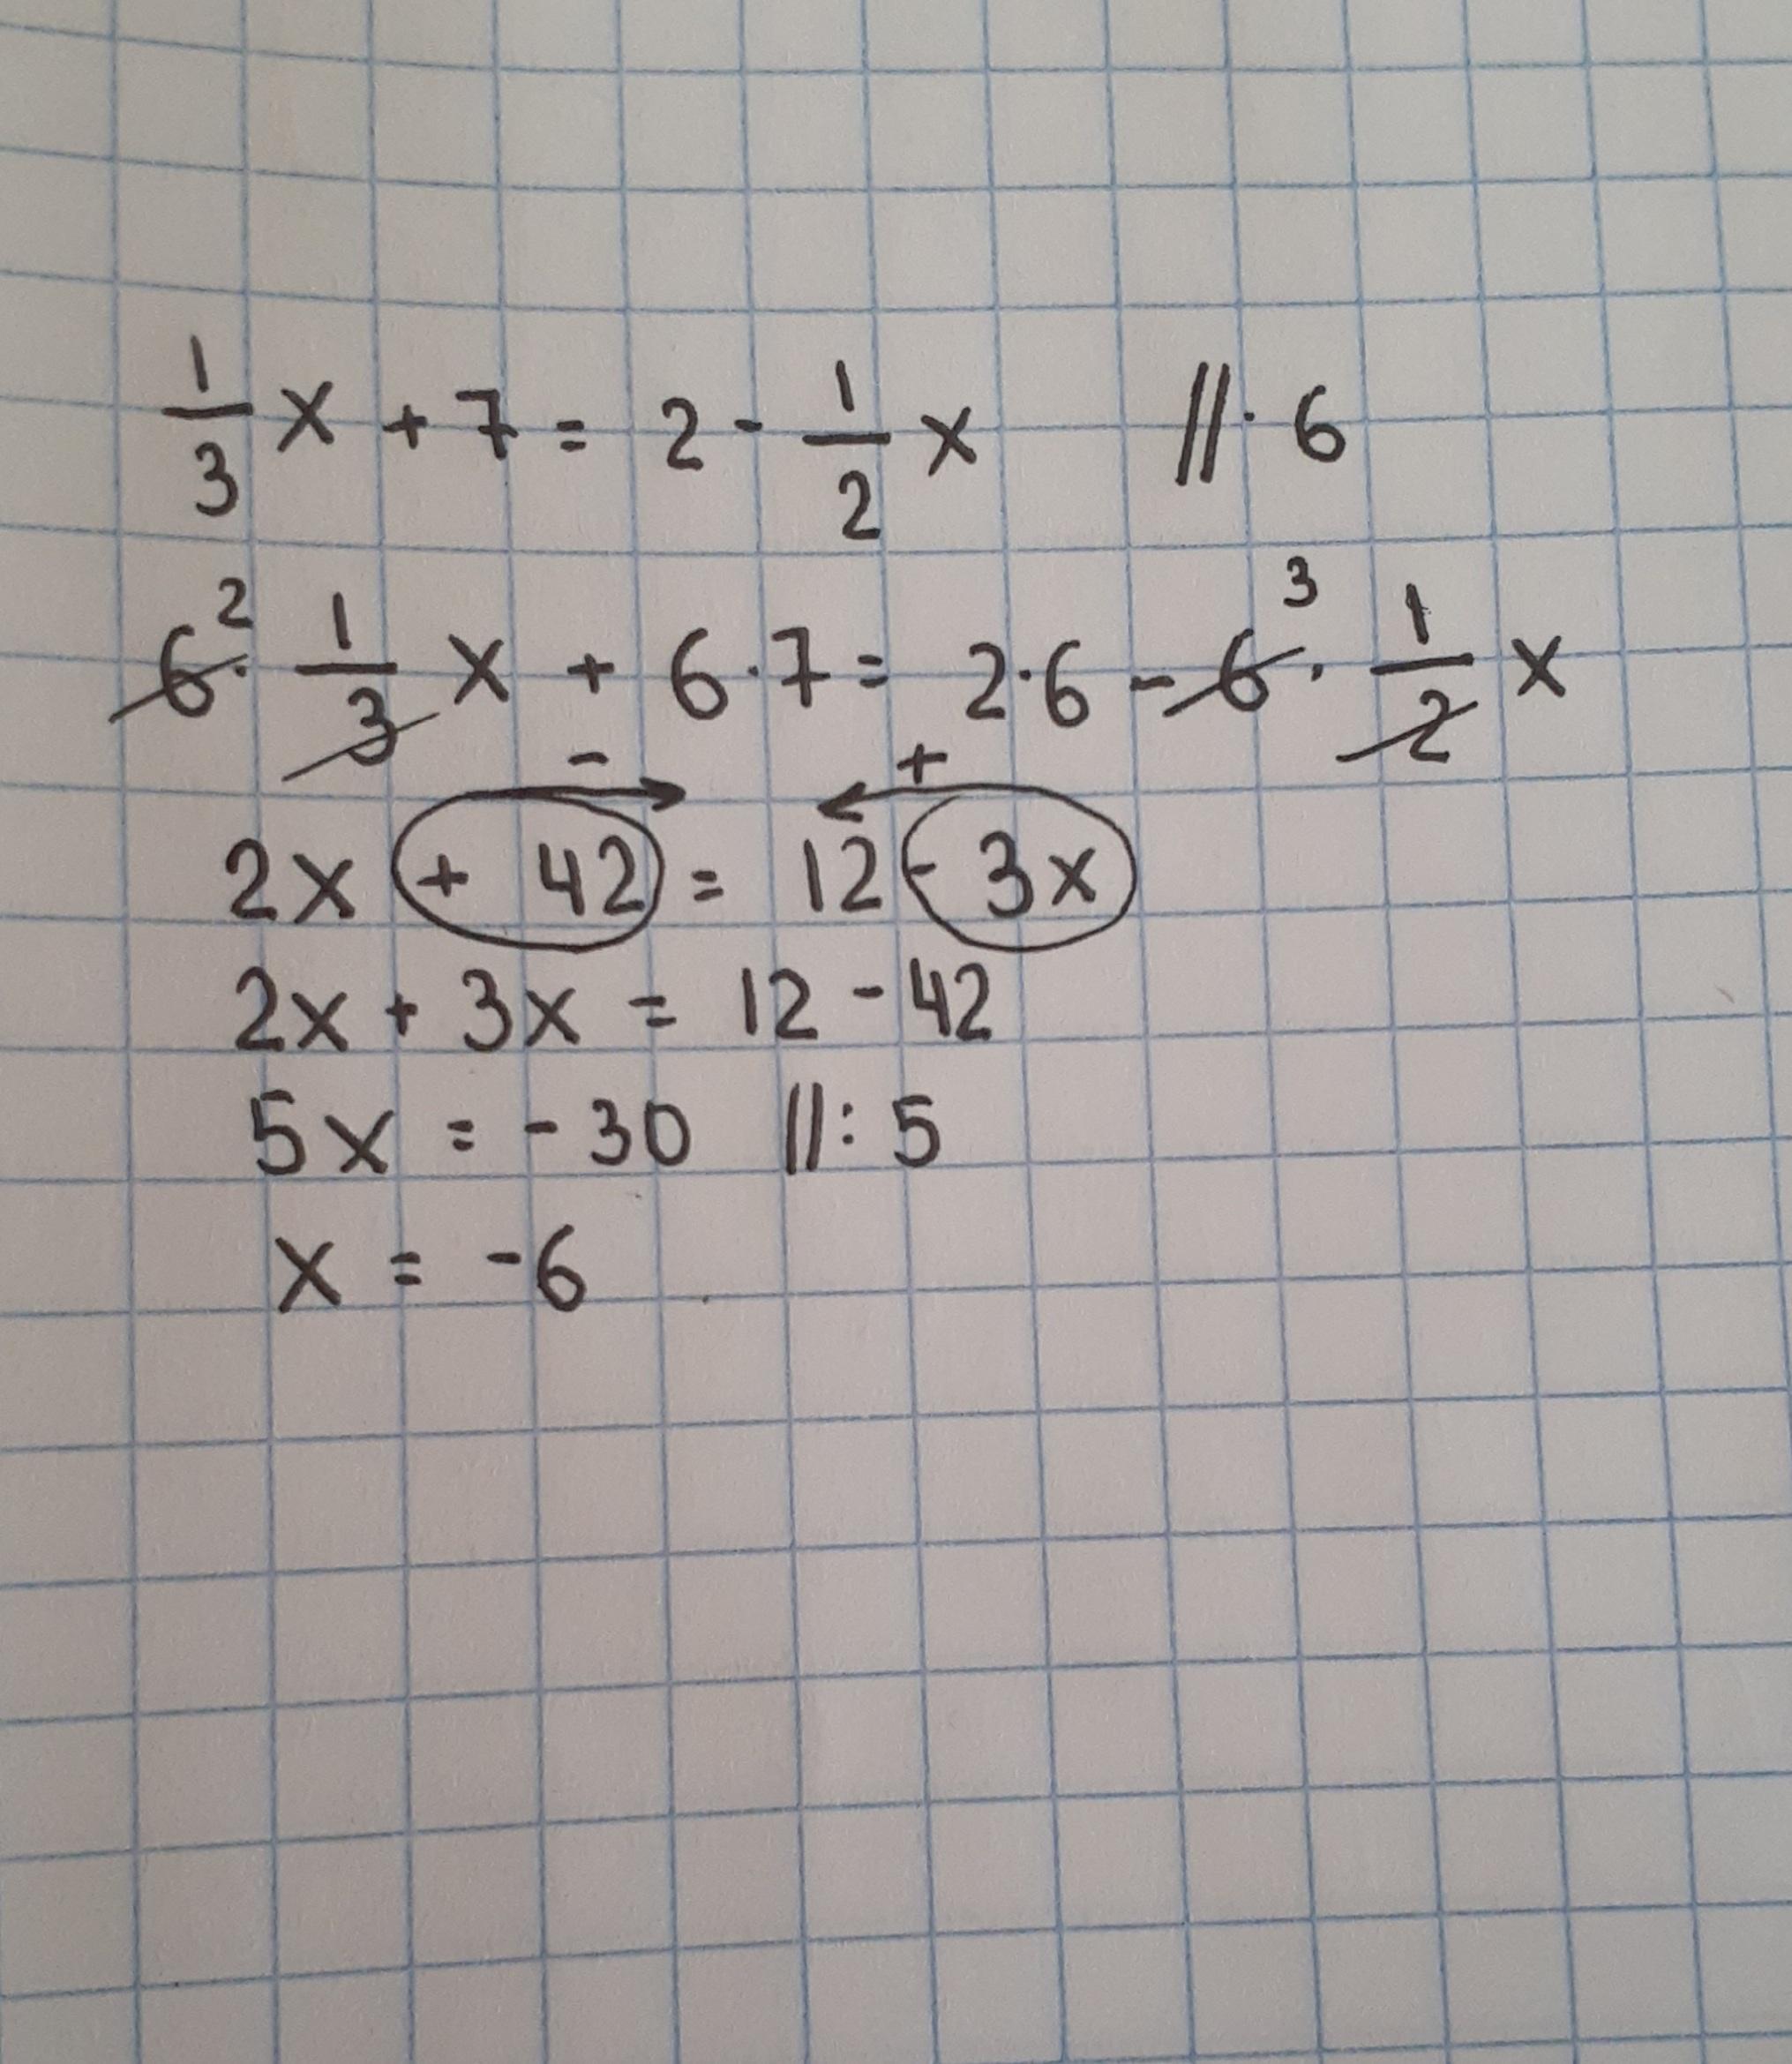 1/3 x + 7 = 2 - 1/2 x //· 6
6² · 1/3 x + 6·7 = 2·6 - 6³ · 1/2 x
- +
2x + 42 = 12 - 3x
2x + 3x = 12 - 42
5x = - 30 //: 5
x = -6